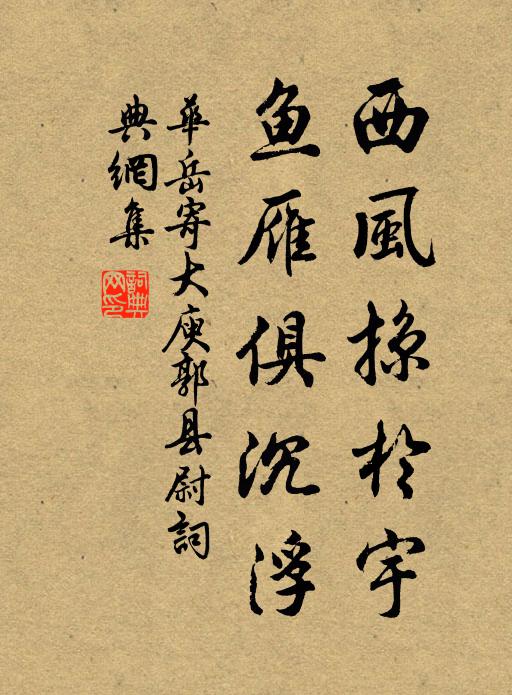 西風掠於宇
鱼雁俱沉浮
華岳寄大庾郭县尉詞
典網集
詞典
网印